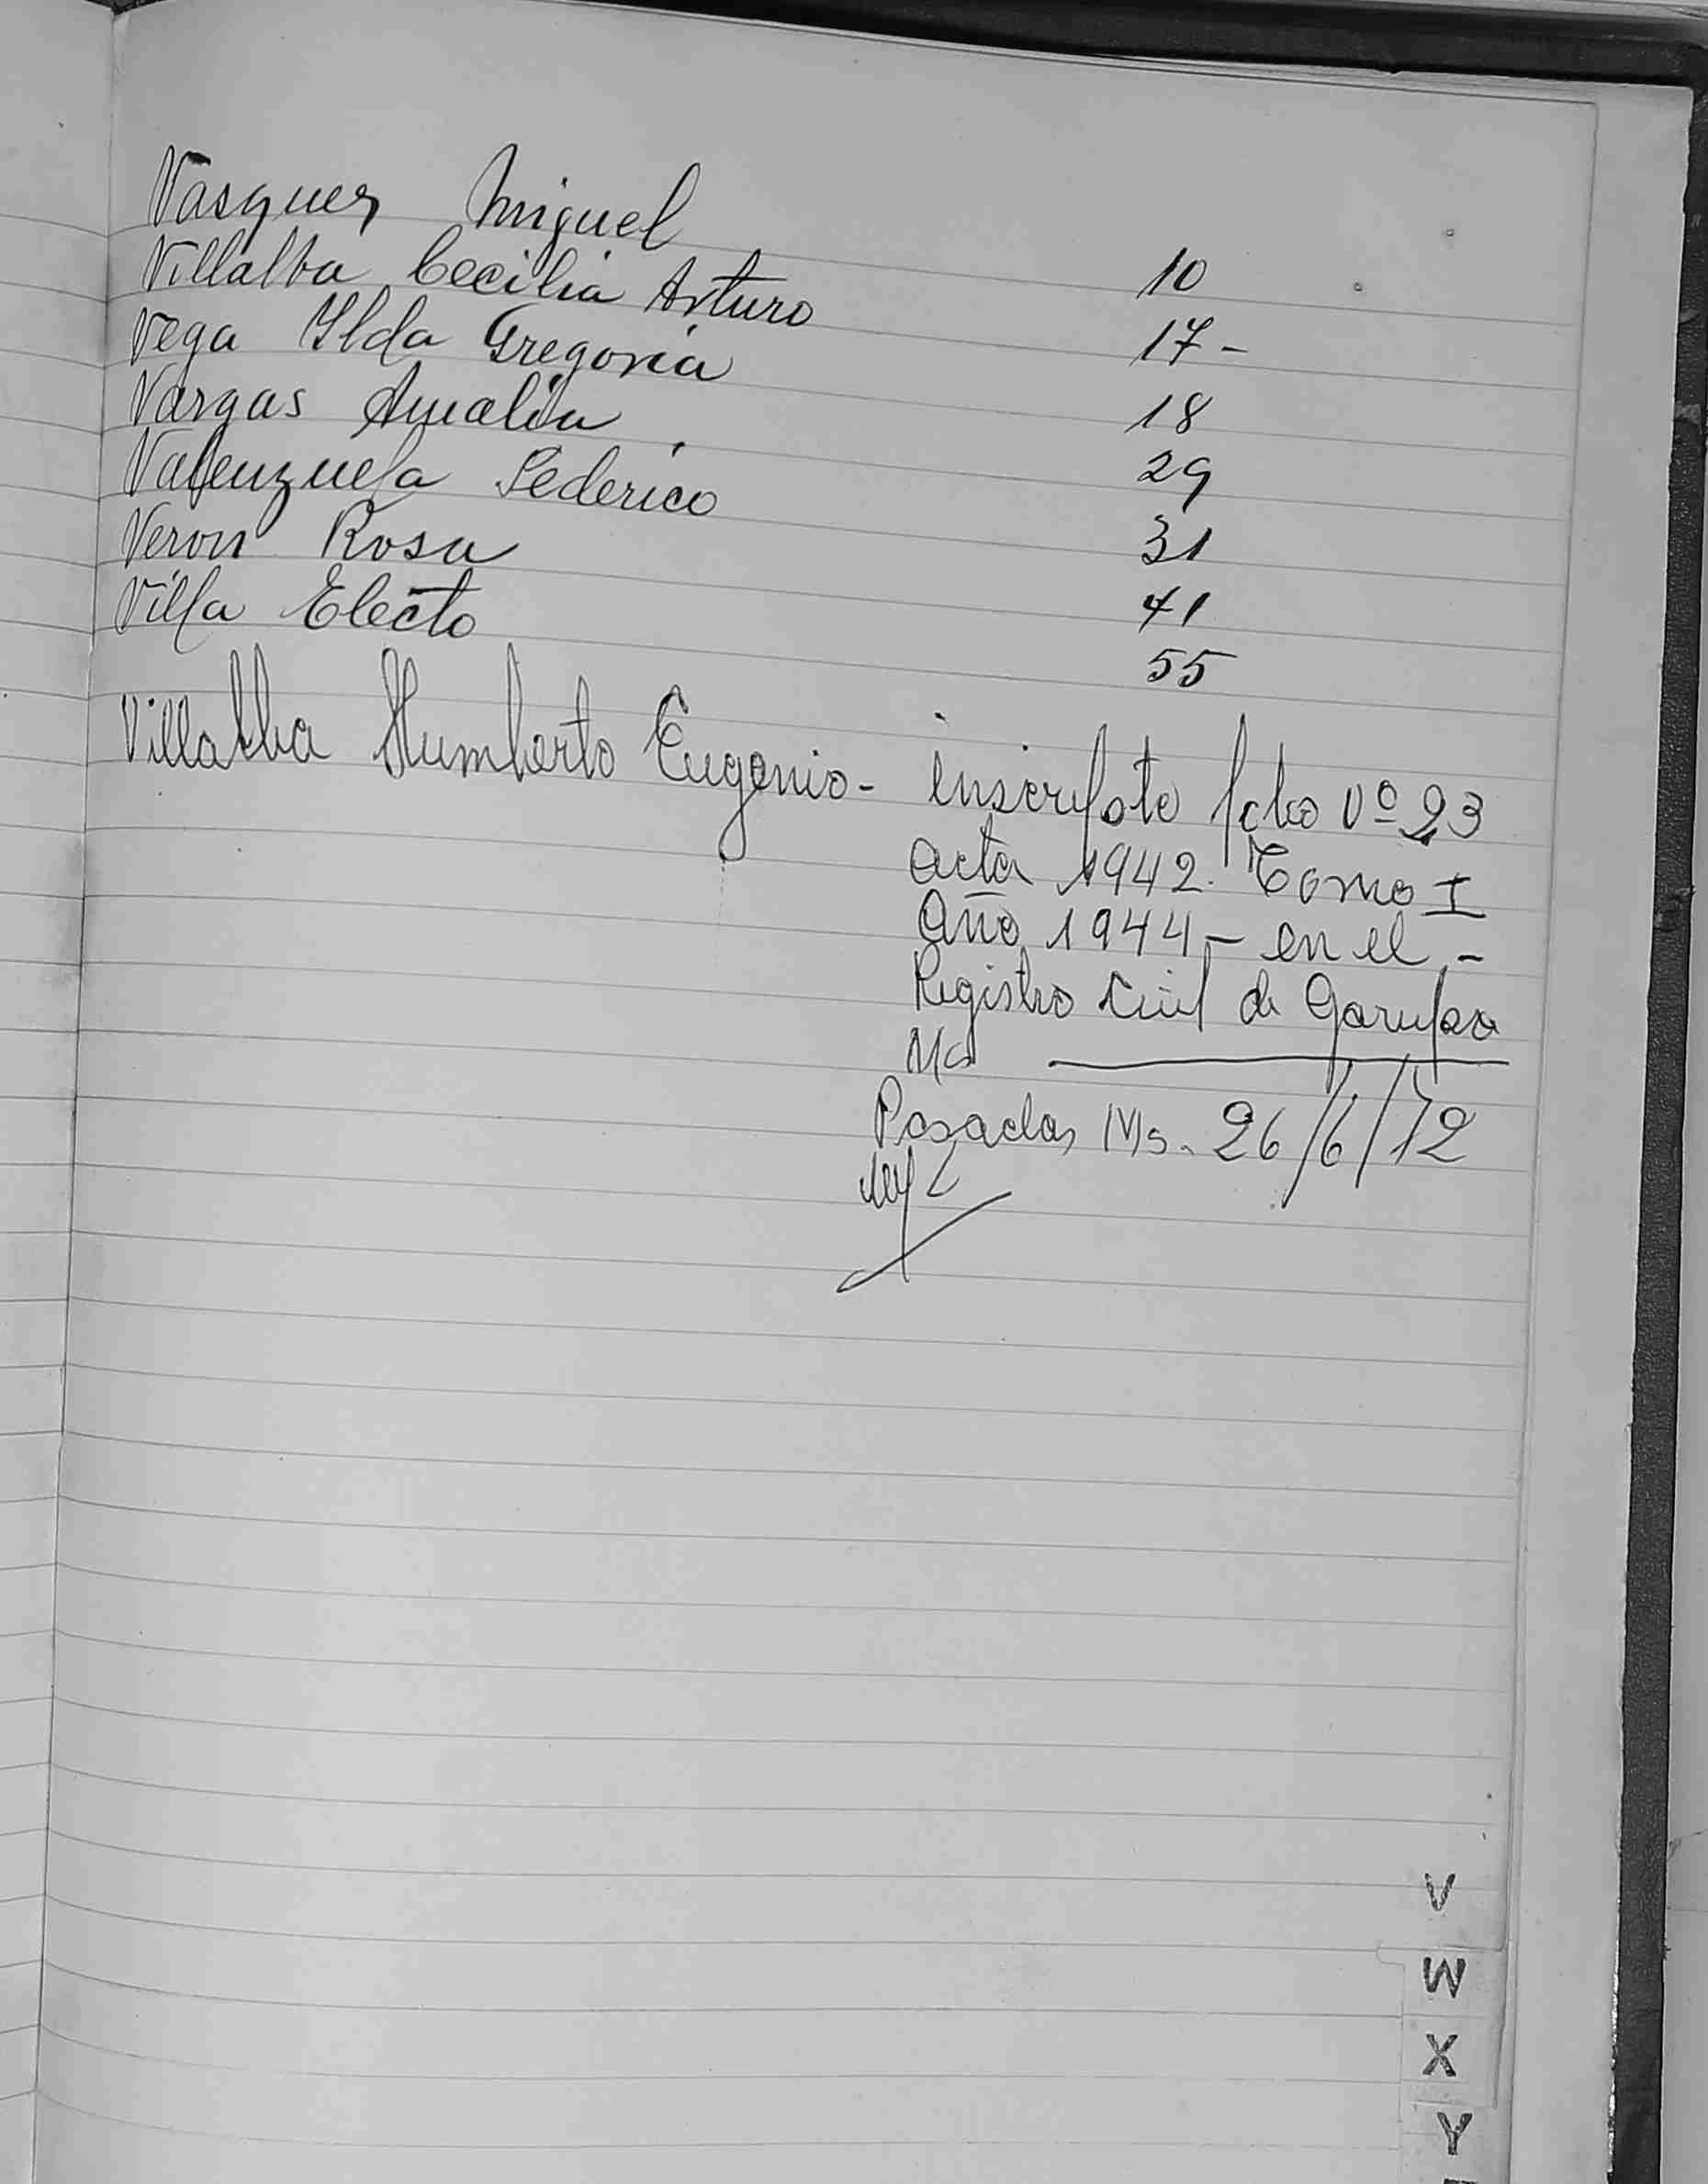 Vasquez Miguel 10
Villalba Cecilia Arturo 17-
Vega Ylda Gregoria 18
Vargas Amalia 29
Valenzuela Federico 31
Veron Rosa 41
Villa Electo 55
Villalba Humberto Eugenio - inscripto folio Nº 23
acta 1942. Tomo I
Año 1944 - en el -
Registro Civil de Garupa
Ms
Posadas Ms. 26/6/72
V
W
X
Y